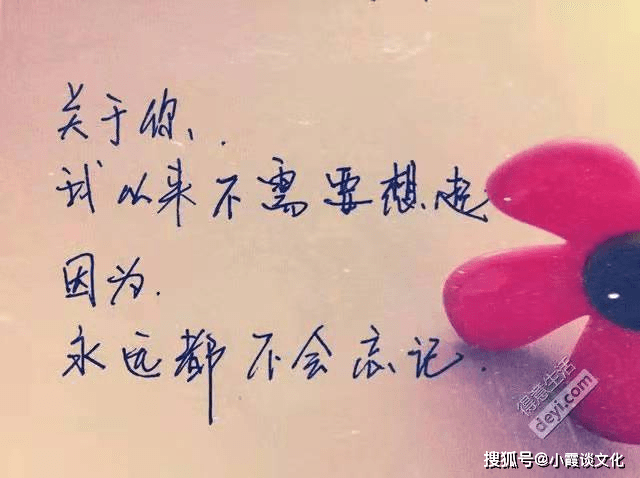 关于你、.
我从来不需要想起
因为.
永远都不会忘记.
得意生活
deyi.com
搜狐号@小霞谈文化